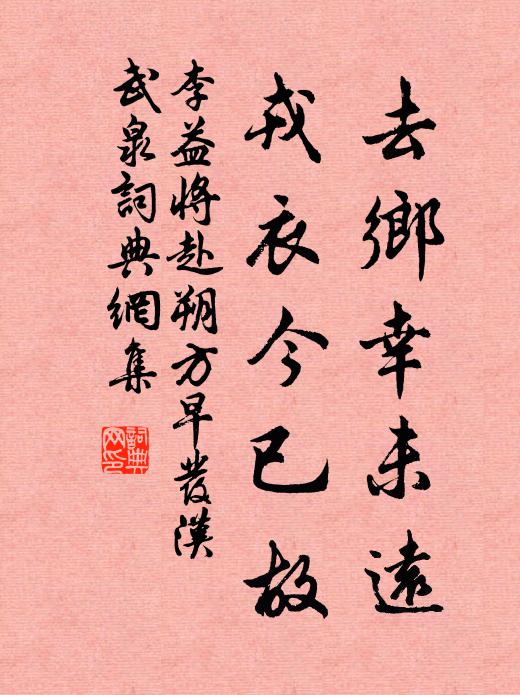 去鄉幸未遠
戎衣今已故
李益將赴朔方早發漢
武泉詞典網集
詞典
网印